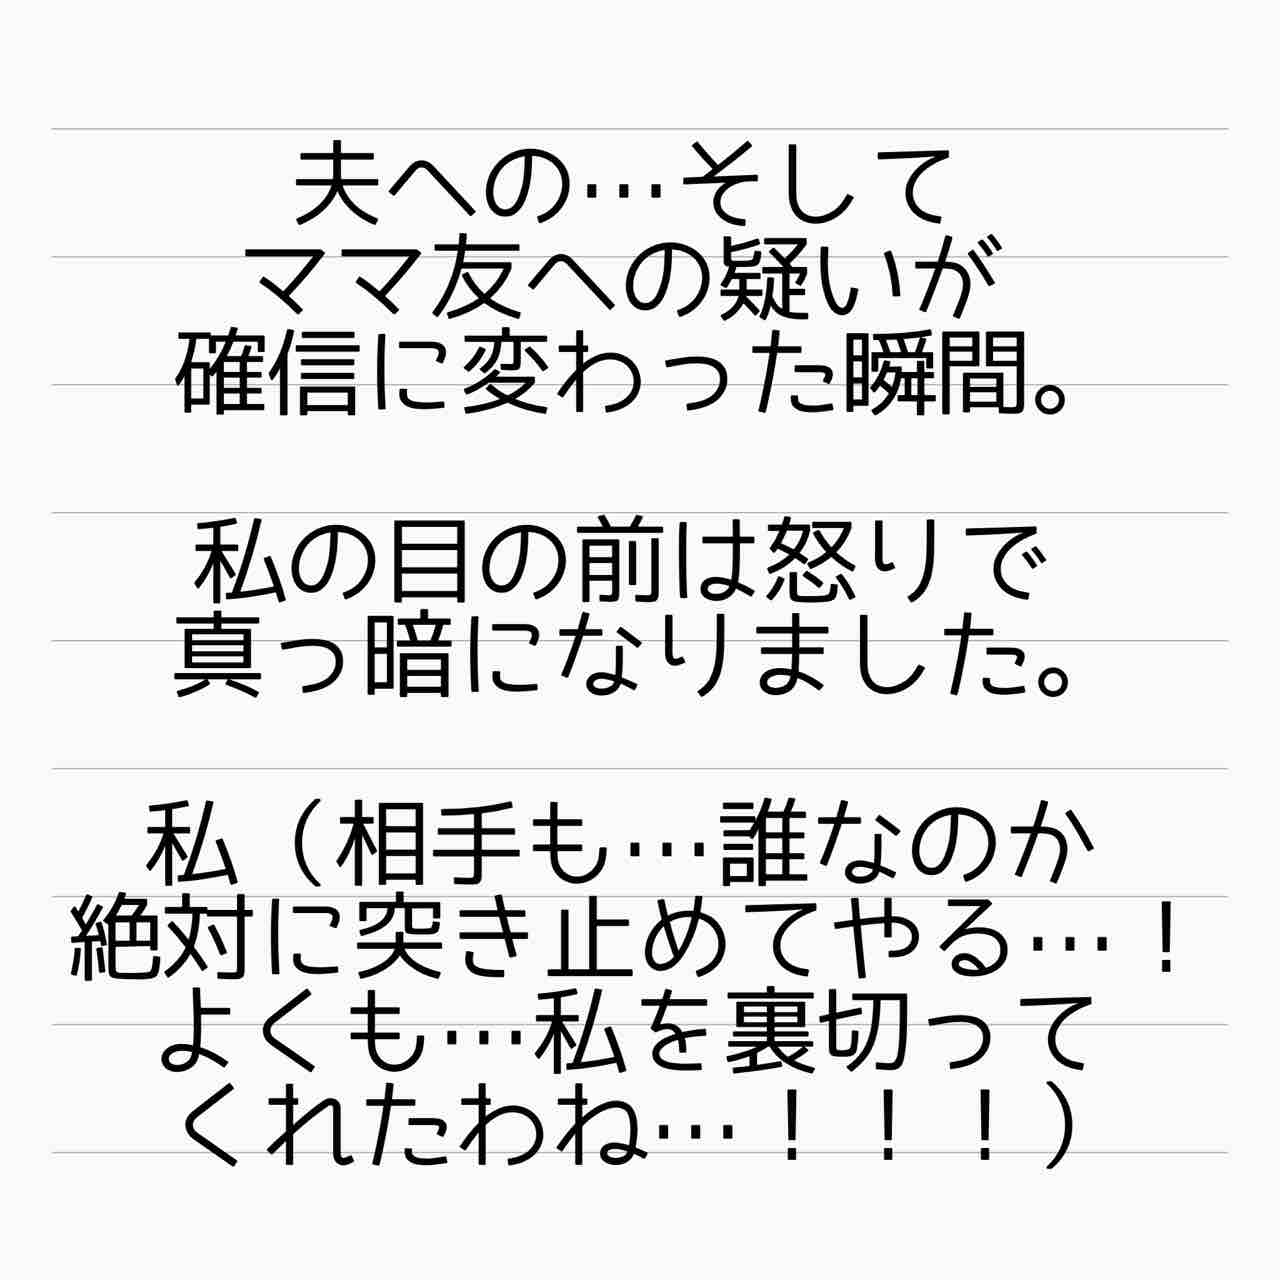 夫への…そして
ママ友への疑いが
確信に変わった瞬間。
私の目の前は怒りで
真っ暗になりました。
私（相手も…誰なのか
絶対に突き止めてやる…！
よくも…私を裏切って
くれたわね…！！！）